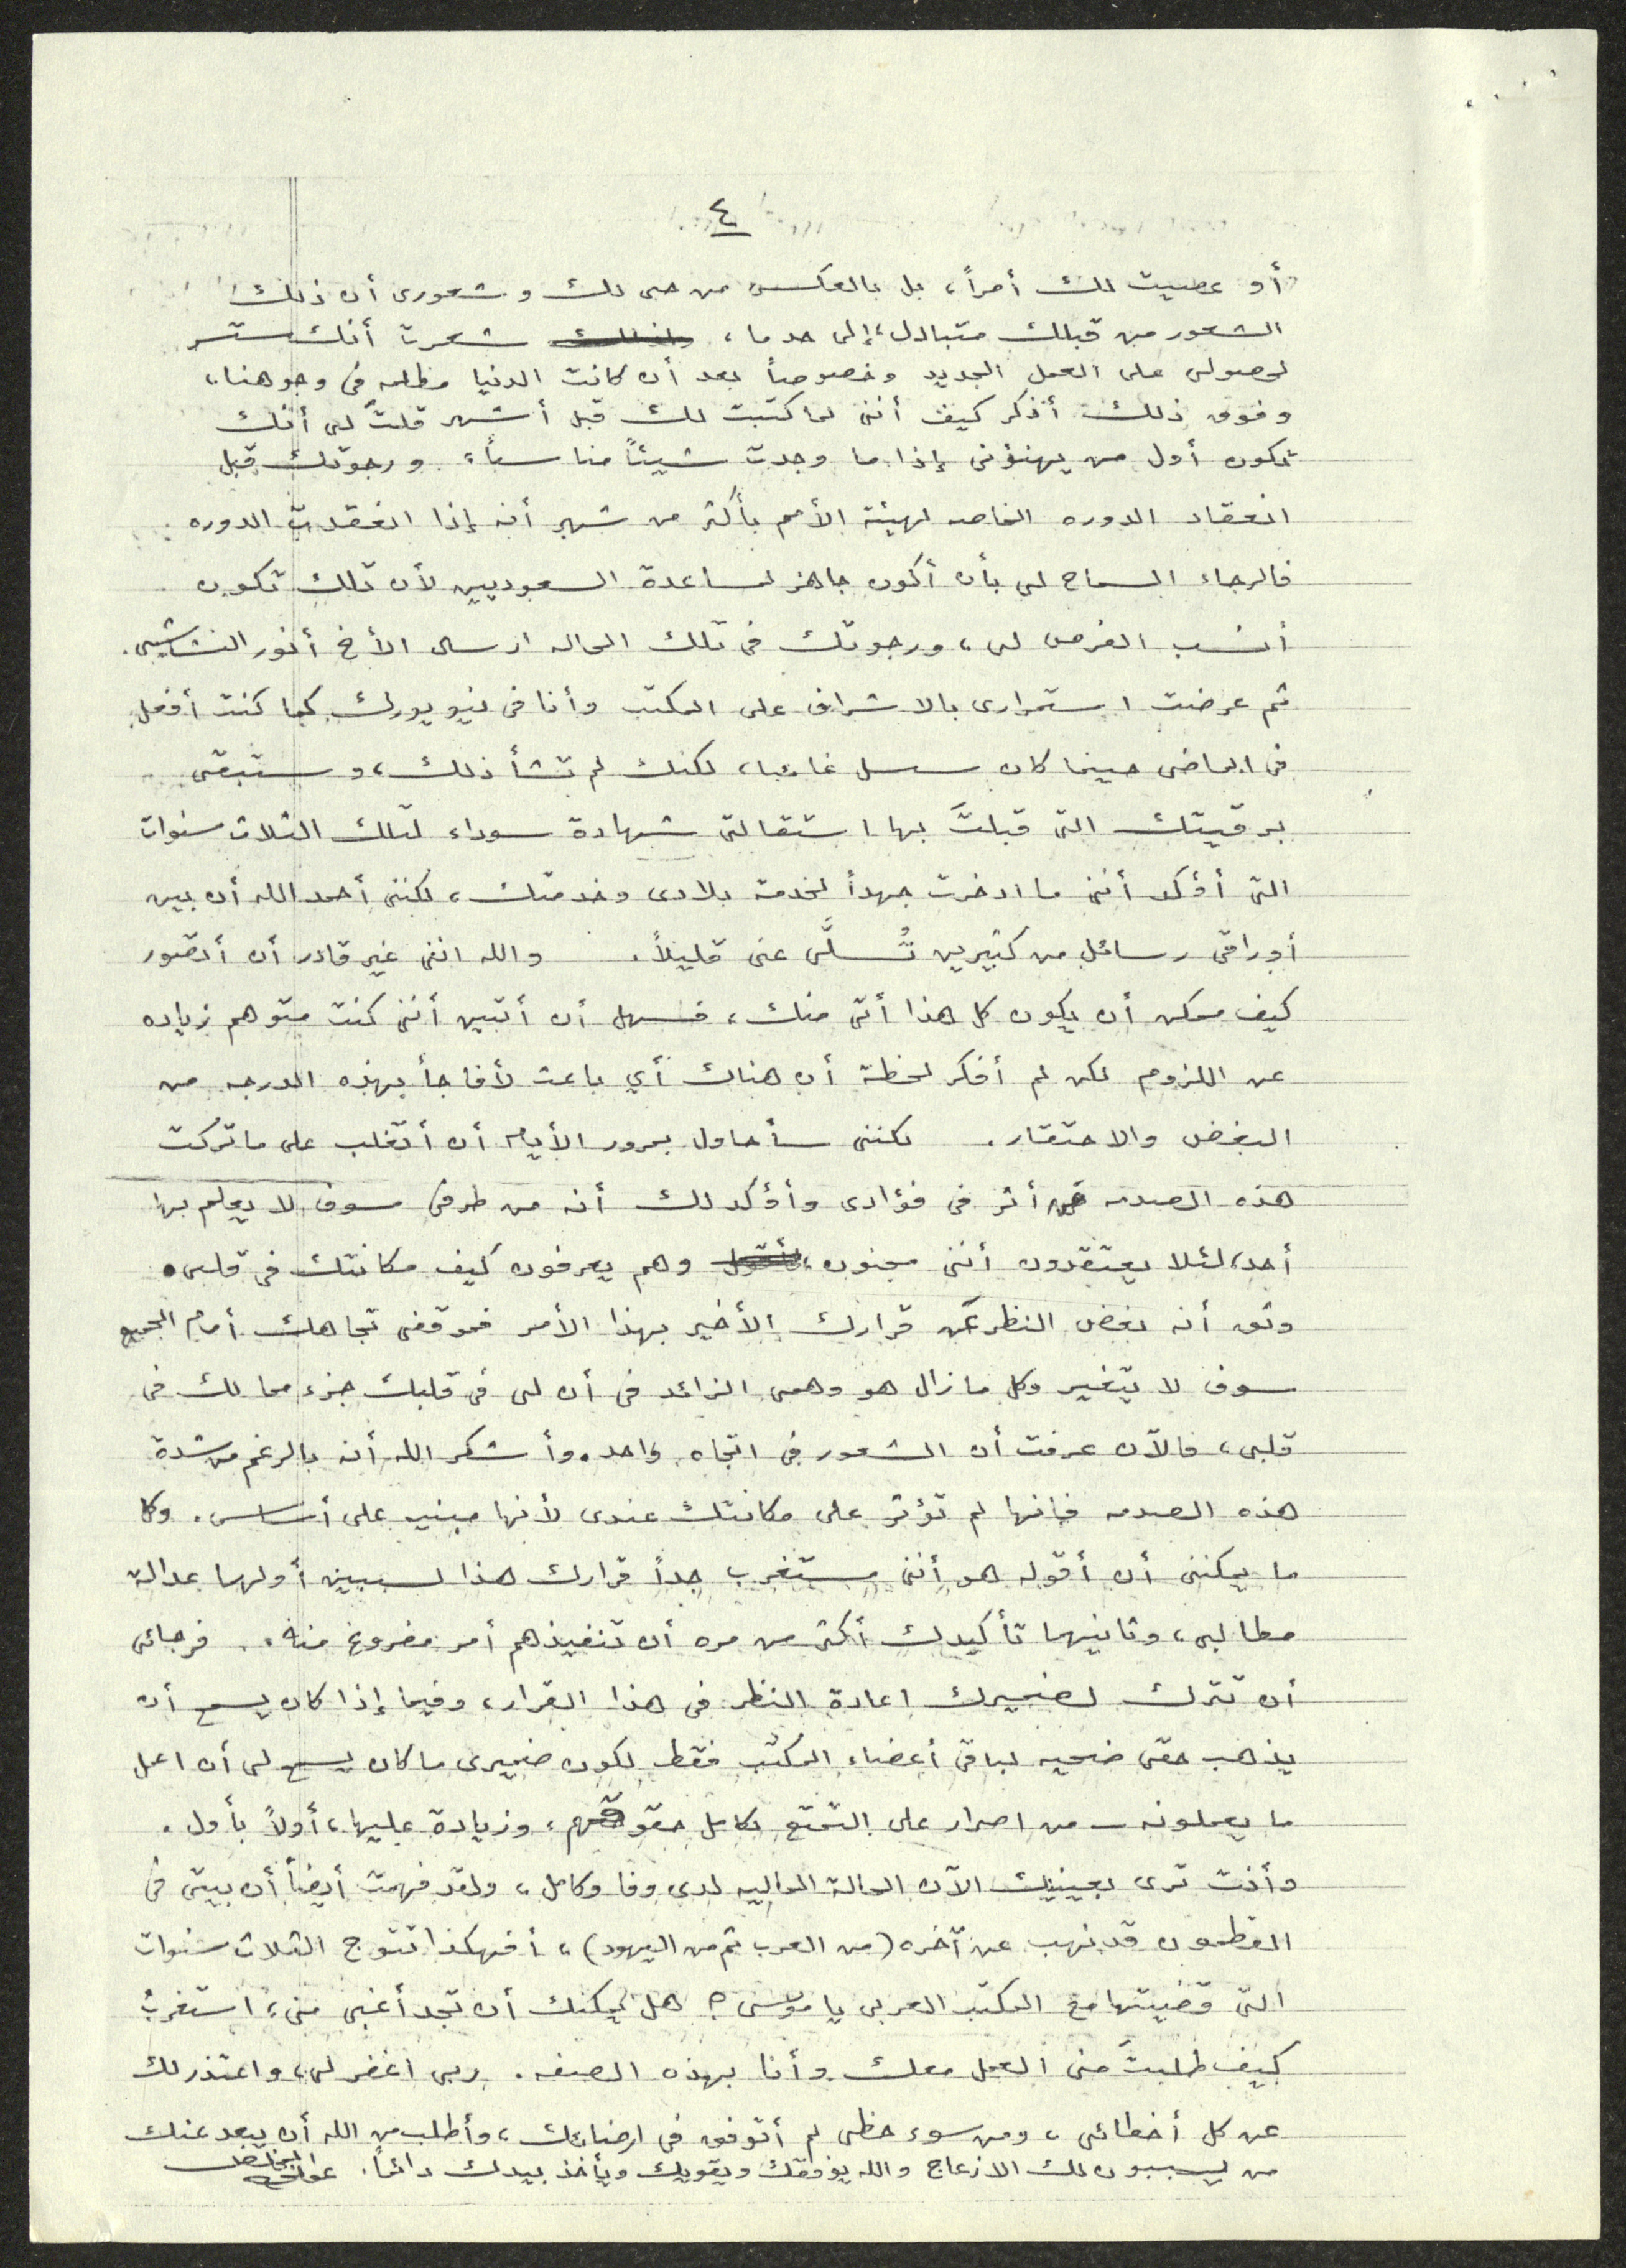 ٤
أو عصيت لك أمراً، بل بالعكس من حبى لك وشعورى أن ذلك
الشعور من قبلك متبادل، إلى حد ما، شعرت أنك ستسر
لحصولى على العمل الجديد وخصوصاً بعد أن كانت الدنيا مظلمه فى وجوهنا،
وفوق ذلك أذكر كيف أننى لما كتبت لك قبل أشهر قلتَ لى أنك
تكون أول من يهنؤنى إذا ما وجدت شيئاً مناسباً، ورجوتك قبل
انعقاد الدوره الخاصه لهيئة الأمم بأكثر من شهر أنه إذا انعقدت الدوره
فالرجاء السماح لى بأن أكون جاهز لمساعدة السعوديين لأن تلك تكون
أنسب الفرص لى، ورجوتك فى تلك الحاله ارسال الأخ أنور النشاشيبى.
ثم عرضت استمرارى بالاشراف على المكتب وأنا فى نيويورك كما كنت أفعل
فى الماضى حينما كان سسل غائبا، لكنك لم تشأ ذلك، وستبقى
برقيتك التى قبلتَ بها استقالتى شهادة سوداء لتلك الثلاث سنوات
التى أؤكد أننى ما ادخرت جهداً لخدمة بلادى وخدمتك، لكننى أحمد الله أن بين
أوراقى رسائل من كثيرين تُسلَّى عنى قليلاً. والله اننى غير قادر أن أتصور
كيف ممكن أن يكون كل هذا أتى منك، فسهل أن أتبين أننى كنت متوهم زياده
عن اللزوم لكن لم أفكر لحظة أن هناك أي باعث لأفاجأ بهذه الدرجه من
البغض والاحتقار. لكننى سأحاول بمرور الأيام أن أتغلب على ما تركت
هذه الصدمه من أثر فى فؤادى وأؤكد لك أنه من طرفى سوف لا يعلم بها
أحد، لئلا يعتقدون أننى مجنون، وهم يعرفون كيف مكانتك فى قلبى.
وثق أنه بغض النظر عن قرارك الأخير بهذا الأمر فموقفى تجاهك أمام الجميع
سوف لا يتغير وكل ما زال هو وهمى الزائد فى أن لى فى قلبك جزء مما لك فى
قلبى، فالآن عرفت أن الشعور فى اتجاه واحد. وأشكر الله أنه بالرغم من شدة
هذه الصدمه فانها لم تؤثر على مكانتك عندى لأنها مبنيه على أساس. وكل
ما يمكننى أن أقوله هو أننى مستغرب جداً قرارك هذا لسببين أولهما عدالة
مطالبى، وثانيهما تأكيدك أكثر من مره أن تنفيذهم أمر مفروغ منه. فرجائى
أن تترك لضميرك اعادة النظر فى هذا القرار، وفيما إذا كان يسمح أن
يذهب حقى ضحيه لباقى أعضاء المكتب فقط لكون ضميرى ما كان يسمح لى أن اعمل
ما يعملونه ـ من اصرار على التمتع بكامل حقوقهم، وزيادة عليها، أولاً بأول.
وأنت ترى بعينيك الآن الحالة الماليه لدى وفا وكامل، ولقد فهمت أيضاً أن بيتى فى
القطمون قد نهب عن آخره (من العرب ثم من اليهود)، أفهكذا تتوج الثلاث سنوات
التى قضيتها مع المكتب العربى يا موسى؟ هل يمكنك أن تجد أغبى منى، استغربُ
كيف طلبتَ منى العمل معك وأنا بهذه الصفه. ربى اغفر لى، واعتذر لك
عن كل أخطائى، ومن سوء حظى لم أتوفق فى ارضائك، وأطلب من الله أن يبعد عنك
من يسببون لك الازعاج والله يوفقك ويقويك ويأخذ بيدك دائماً. المخلص